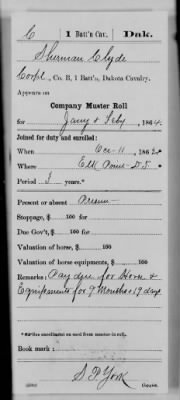 C | 1 Batt'n Cav. | Dak.
Sherman Clyde
Corpl, Co. B, 1 Batt'n, Dakota Cavalry.
Appears on
Company Muster Roll
for Jany & Feby, 1864.
Joined for duty and enrolled:
When Dec 11, 1862.*
Where Elk Point D.T.
Period 3 years.*
Present or absent Present
Stoppage, $ 100 for
Due Gov't, $ 100 for
Valuation of horse, $ 100
Valuation of horse equipments, $ 100
Remarks: Pay due for Horse &
Equipements for 9 Months & 19 days
Book mark:
S. P. York
Copyist.